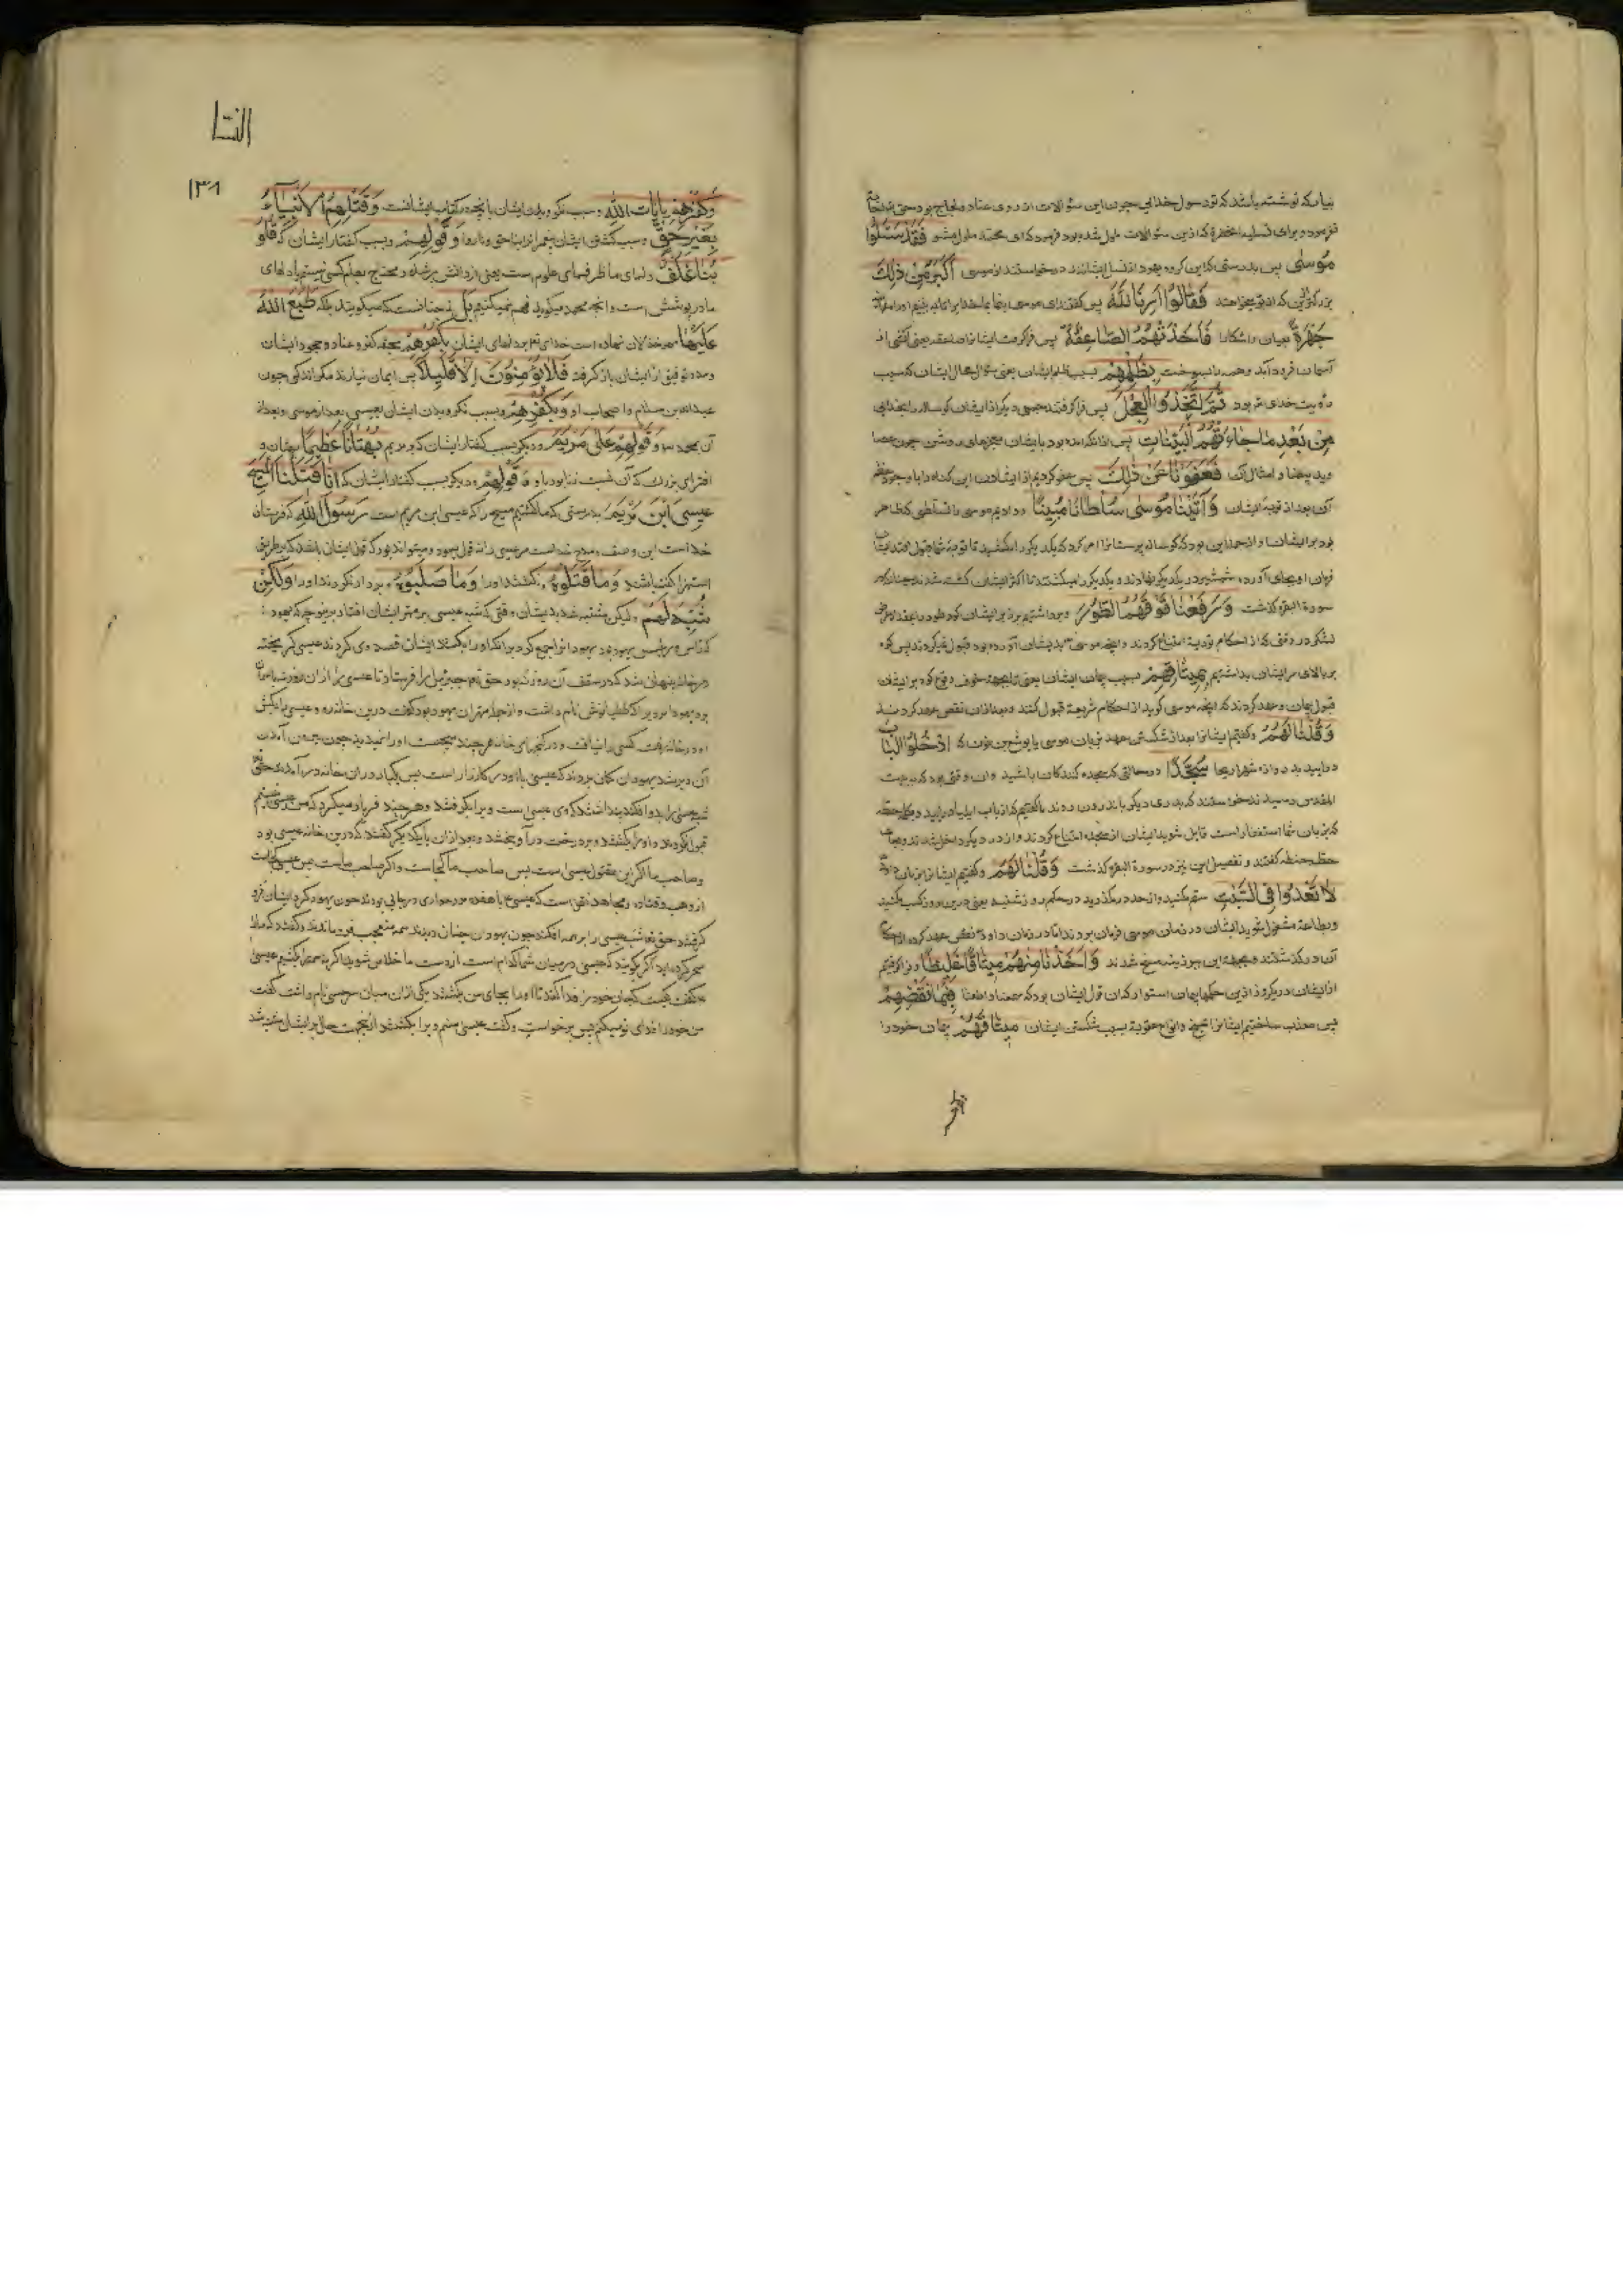 بیارکه نوشته باشد که تو رسول خدایی چون این سؤالات از روی عناد و لجاج بود حق
فرمود و برای تسلیه آنحضرة که ازین سئوالات ملول شده بود فرمود که ای محمد ملول مشو فَقَدْ سَئَلُوا
مُوسٰی پس بدرستی که این گروه یهود از نسل ایشانند درخواستند از موسی اَکْبَرَ مِنْ ذٰلِکَ
بزرکتر ازین که از تو میخواهند فَقَالُوا اَرِنَا اللّٰهَ پس گفتند ای موسی بنما بما خدا را
جَهْرَةً عیان و اشکارا فَاَخَذَتْهُمُ الصَّاعِقَةُ پس فراگرفت ایشانرا صاعقه یعنی آتشی از
آسمان فرود آمد و همه را بسوخت بِظُلْمِهِمْ بسبب ظلم ایشان یعنی سؤال محال ایشان که سبب
رؤیت خدای تع بود ثُمَّ اتَّخَذُوا الْعِجْلَ پس فراکرفتند جمعی دیکر از ایشان کوساله را بخدایی
مِنْ بَعْدِ مٰا جٰاءَتْهُمُ الْبَیِّنَاتُ پس از آنکه آمده بود بایشان معجزهای روشن چون عصا
وید بیضا و امثال آن فَعَفَوْنَا عَنْ ذٰلِکَ پس عفو کردیم از ایشان این کناه را با وجود
آن بعد از توبهٔ ایشان وَ اٰتَیْنَا مُوسٰی سُلْطَانًا مُبِینًا و دادیم موسی را تسلطی که ظاهر
بود بر ایشان و از جمله این بود که کوساله پرستانرا امر کرد که یکدیکر را بکشید تا توبه شما قبول
فرمان او بجای آورده شمشیر در یکدیکر نهادند و یکدیکر را میکشتند تا اکثر ایشان کشته شدند چنانکه در
سورة البقره کذشت وَ رَفَعْنَا فَوْقَهُمُ الطُّورَ و برداشتیم بر زبر ایشان کوه طور را
لشکر در وقتی که از احکام توریة امتناع کردند و آنچه موسی بدیشان آورده بود قبول نمیکردند پس کوه
بر بالای سر ایشان بداشتیم بِمِیثَاقِهِمْ بسبب پیمان ایشان یعنی تا بجهة خوف وقوع کوه بر ایشان
قبول پیمان و عهد کردند که آنچه موسی کوید از احکام شریعة قبول کنند و بعد ازان نقض عهد کردند
وَ قُلْنَا لَهُمُ و کفتیم ایشانرا بعد از شکستن عهد بزبان موسی یا یوشع بن نون که ادْخُلُوا الْبَابَ
درایید بدروازه شهر اریحا سُجَّدًا در حالتی که سجده کنندکان باشید و ان وقتی بود که به بیت
المقدس رسیدند خواستند که بدری دیکر باندرون روند ما کفتیم که از باب ایلیا درایید و بکلمه حطه
که بزبان شما استغفار است قایل شوید ایشان از سجده امتناع کردند و از در دیکر داخل شدند و بجای
حطه حنطه کفتند و تفصیل این نیز در سورة البقره کذشت وَ قُلْنَا لَهُمْ و کفتیم ایشانرا بزبان داود
لَا تَعْدُوا فِی السَّبْتِ ستم مکنید و از حد در مکذرید در حکم روز شنبه یعنی درین روز کسب مکنید
و بطاعة مشغول شوید ایشان در زمان موسی فرمان بردند اما در زمان داود نقض عهد کرده از حکم
آن در کذشتند و بجهة این بوزینه مسخ شدند وَ اَخَذْنَا مِنْهُمْ مِیثَاقًا غَلِیظًا و فراکرفتیم
از ایشان در یکروز ازین حکمها پیمان استوار که ان قول ایشان بود که سمعنا و اطعنا فَبِمَا نَقْضِهِمْ
پس معذب ساختیم ایشانرا بمسخ و انواع عقوبة بسبب شکستن ایشان مِیثَاقَهُمْ پیمان خود را
النسا
۱۳۸
وَ کُفْرِهِمْ بِاٰیَاتِ اللّٰهِ و سبب نکرویدن ایشان بانچه در کتاب ایشانست وَ قَتْلِهِمُ الْاَنْبِیَاءَ
بِغَیْرِ حَقٍّ و سبب کشتن ایشان پیغمبرانرا بناحق و ناروا وَ قَوْلِهِمْ و بسبب کفتار ایشان که قُلُو
بُنَا غُلْفٌ دلهای ما ظرفهای علوم است یعنی از دانش پر شده و محتاج بعلم کسی نیستیم یا دلهای
ما در پوشش است و آنچه محمد میکوید فهم نمیکنیم بَلْ نه چنانست که میکویند بلکه طَبَعَ اللّٰهُ
عَلَیْهَا مهر خذلان نهاده است خدای تع بر دلهای ایشان بِکُفْرِهِمْ بجهة کفر و عناد و جحود ایشان
و مدد توفیق از ایشان باز کرفت فَلَا یُؤْمِنُونَ اِلَّا قَلِیلًا پس ایمان نیارند مکر اندکی چون
عبدالله بن سلام و اصحاب او وَ بِکُفْرِهِمْ و بسبب نکرویدن ایشان بعیسی بعد از موسی و بعد از
آن بمحمد وَ قَوْلِهِمْ عَلٰی مَرْیَمَ و دیکر بسبب کفتار ایشان که بر مریم بُهْتَانًا عَظِیمًا بهتان و
افترای بزرک که آن نسبت زنا بود باو وَ قَوْلِهِمْ و دیکر بسبب کفتار ایشان که اِنَّا قَتَلْنَا الْمَسِیحَ
عِیسَی ابْنَ مَرْیَمَ بدرستی که ما کشتیم مسیح را که عیسی ابن مریم است رَسُولَ اللّٰهِ که فرستاده
خداست این وصف و مدح خداست مر عیسی را نه قول یهود و میتواند بود که قول ایشان باشد که بر طریق
استهزا کفته باشند وَ مَا قَتَلُوهُ و نکشتند او را وَ مَا صَلَبُوهُ و بر دار نکردند او را وَ لٰکِنْ
شُبِّهَ لَهُمْ ولیکن مشتبه شد بدیشان وقتی که شبه عیسی بر مهتر ایشان افتاد
جمع کرد برانکه او را بکشند ایشان قصد وی کردند عیسی کریخته
در خانه پنهان شد که در سقف آن روزنه بود حق تع جبرئیل را فرستاد تا عیسی را از ان روزنه باسمان
برد یهودا مردی را که طیطانوش نام داشت و از جمله مهتران یهود بود کفت درین خانه رو و عیسی را بکش
او در خانه رفت کسی را نیافت و در کنجهای خانه هر چند میجست او را نمیدید چون بیرون آمدن
آن دیر شد یهودان کمان بردند که عیسی با او در کارزار است پس یکبار در ان خانه درآمدند حق تع
شبه عیسی را بر او افکند پنداشتند که وی عیسی است ویرا بکرفتند و هر چند فریاد میکرد که من عیسی نیستم
قبول نکردند و او را بکشتند و بر درخت درآویختند و بعد ازان با یکدیکر کفتند که درین خانه عیسی بود
و صاحب ما اکر این مقتول عیسی است پس صاحب ما کجاست و اکر صاحب ماست پس عیسی کجاست
از وهب و قتاده و مجاهد نقل است که عیسی با هفده مرد حواری در جایی بودند چون یهود کرد ایشان فرو
کرفتند حق تع شبه عیسی را بر همه افکند چون یهودان چنان دیدند همه متعجب فرو ماندند و کفتند که ما را
سحر کرده اید اکر بکویید که عیسی در میان شما کدام است از دست ما خلاص شوید و اکر نه همه را بکشیم عیسی
کفت کیست که جان خود را فدا کند تا او را بجای من بکشند یکی از ان میان سرجس نام داشت کفت
من خود را فدای تو میکنم پس برخواست و کفت عیسی منم ویرا بکشتند ازینجهت حال بر ایشان مشتبه شد